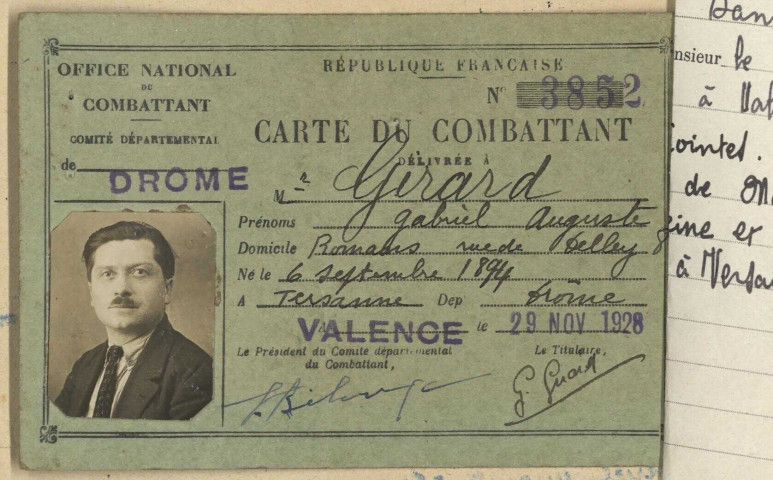 OFFICE NATIONAL
DU
COMBATTANT
COMITÉ DÉPARTEMENTAL
de DROME
RÉPUBLIQUE FRANÇAISE
N° 3852
CARTE DU COMBATTANT
DÉLIVRÉE À
Mr Gerard
Prénoms gabriel Auguste
Domicile Romans rue de 8
Né le 6 septembre 1894
A Tersanne Dep Drôme
A VALENCE le 29 NOV 1928
Le Président du Comité départemental
du Combattant,
Le Titulaire,
G. Gerard
nsieur le
à
ointes.
de
et
à